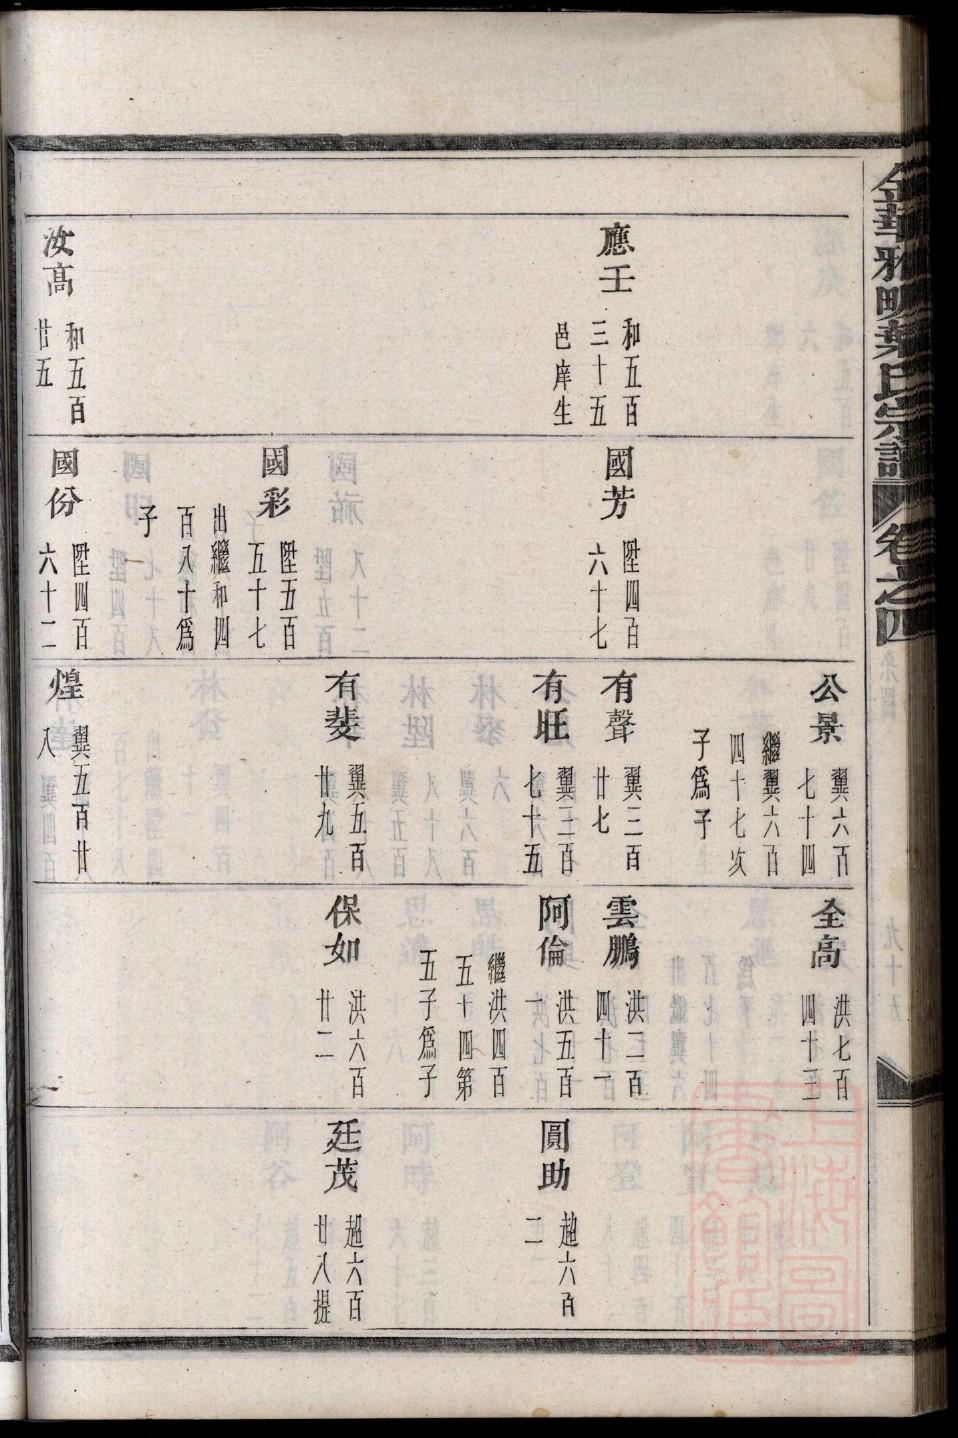 金華雅畈葉氏宗譜
卷之四
應壬
和五百
三十五
邑庠生
汝高
和五百
廿五
國芳
陞四百
六十七
國彩
陞五百
五十七
出繼和四
百八十爲
子
國份
陞四百
六十二
公景
翼六百
七十四
繼翼六百
四十七次
子爲子
有聲
翼三百
廿七
有旺
翼三百
七十五
有斐
翼五百
廿九
煌
翼五百廿
八
全高
洪七百
四十三
雲鵬
洪二百
四十一
阿倫
洪五百
一
繼洪四百
五十四第
五子爲子
保如
洪六百
廿二
圓助
趙六百
二
廷茂
趙六百
廿八提